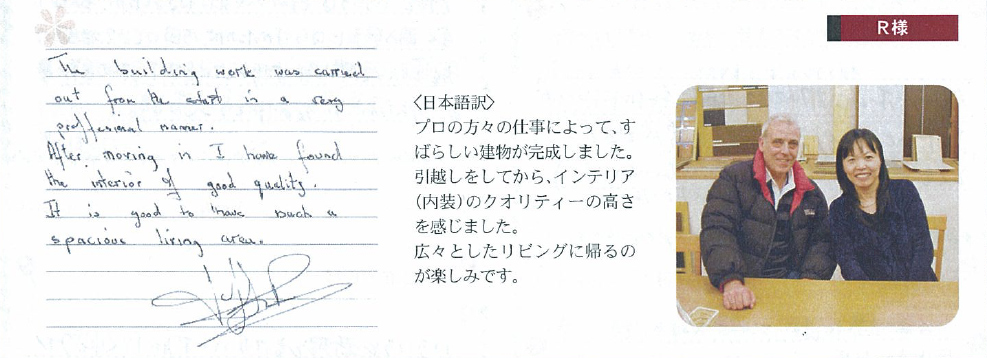 R様
The building work was carried
out from the start in a very
proffesinal manner.
After moving in I have found
the interior of good quality.
It is good to have such a
spacious living area.
〈日本語訳〉
プロの方々の仕事によって、す
ばらしい建物が完成しました。
引越しをしてから、インテリア
(内装)のクオリティーの高さ
を感じました。
広々としたリビングに帰るの
が楽しみです。